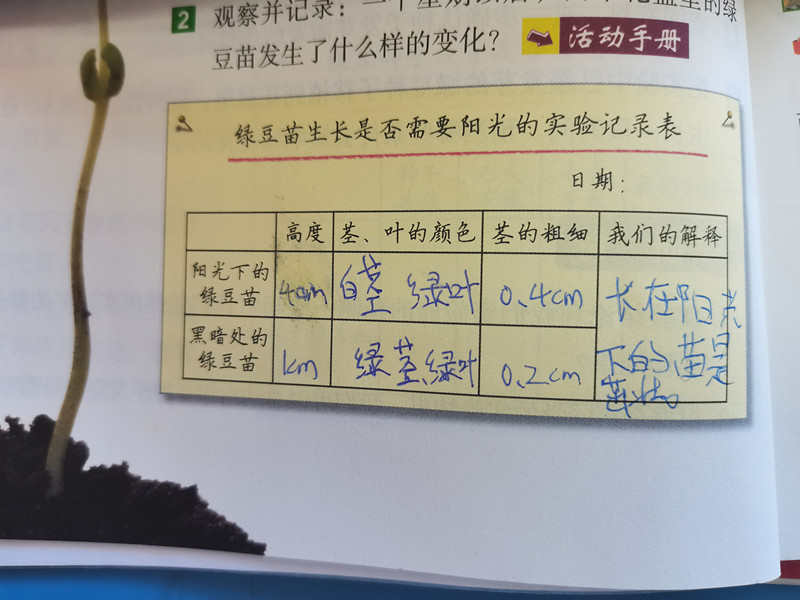 2 观察并记录：一个星期以后，
的绿
豆苗发生了什么样的变化？ 活动手册
绿豆苗生长是否需要阳光的实验记录表
日期：
高度 茎、叶的颜色 茎的粗细 我们的解释
阳光下的绿豆苗 4cm 白茎 绿叶 0.4cm 长在阳光
黑暗处的绿豆苗 km 绿茎绿叶 0.2cm 下的苗是